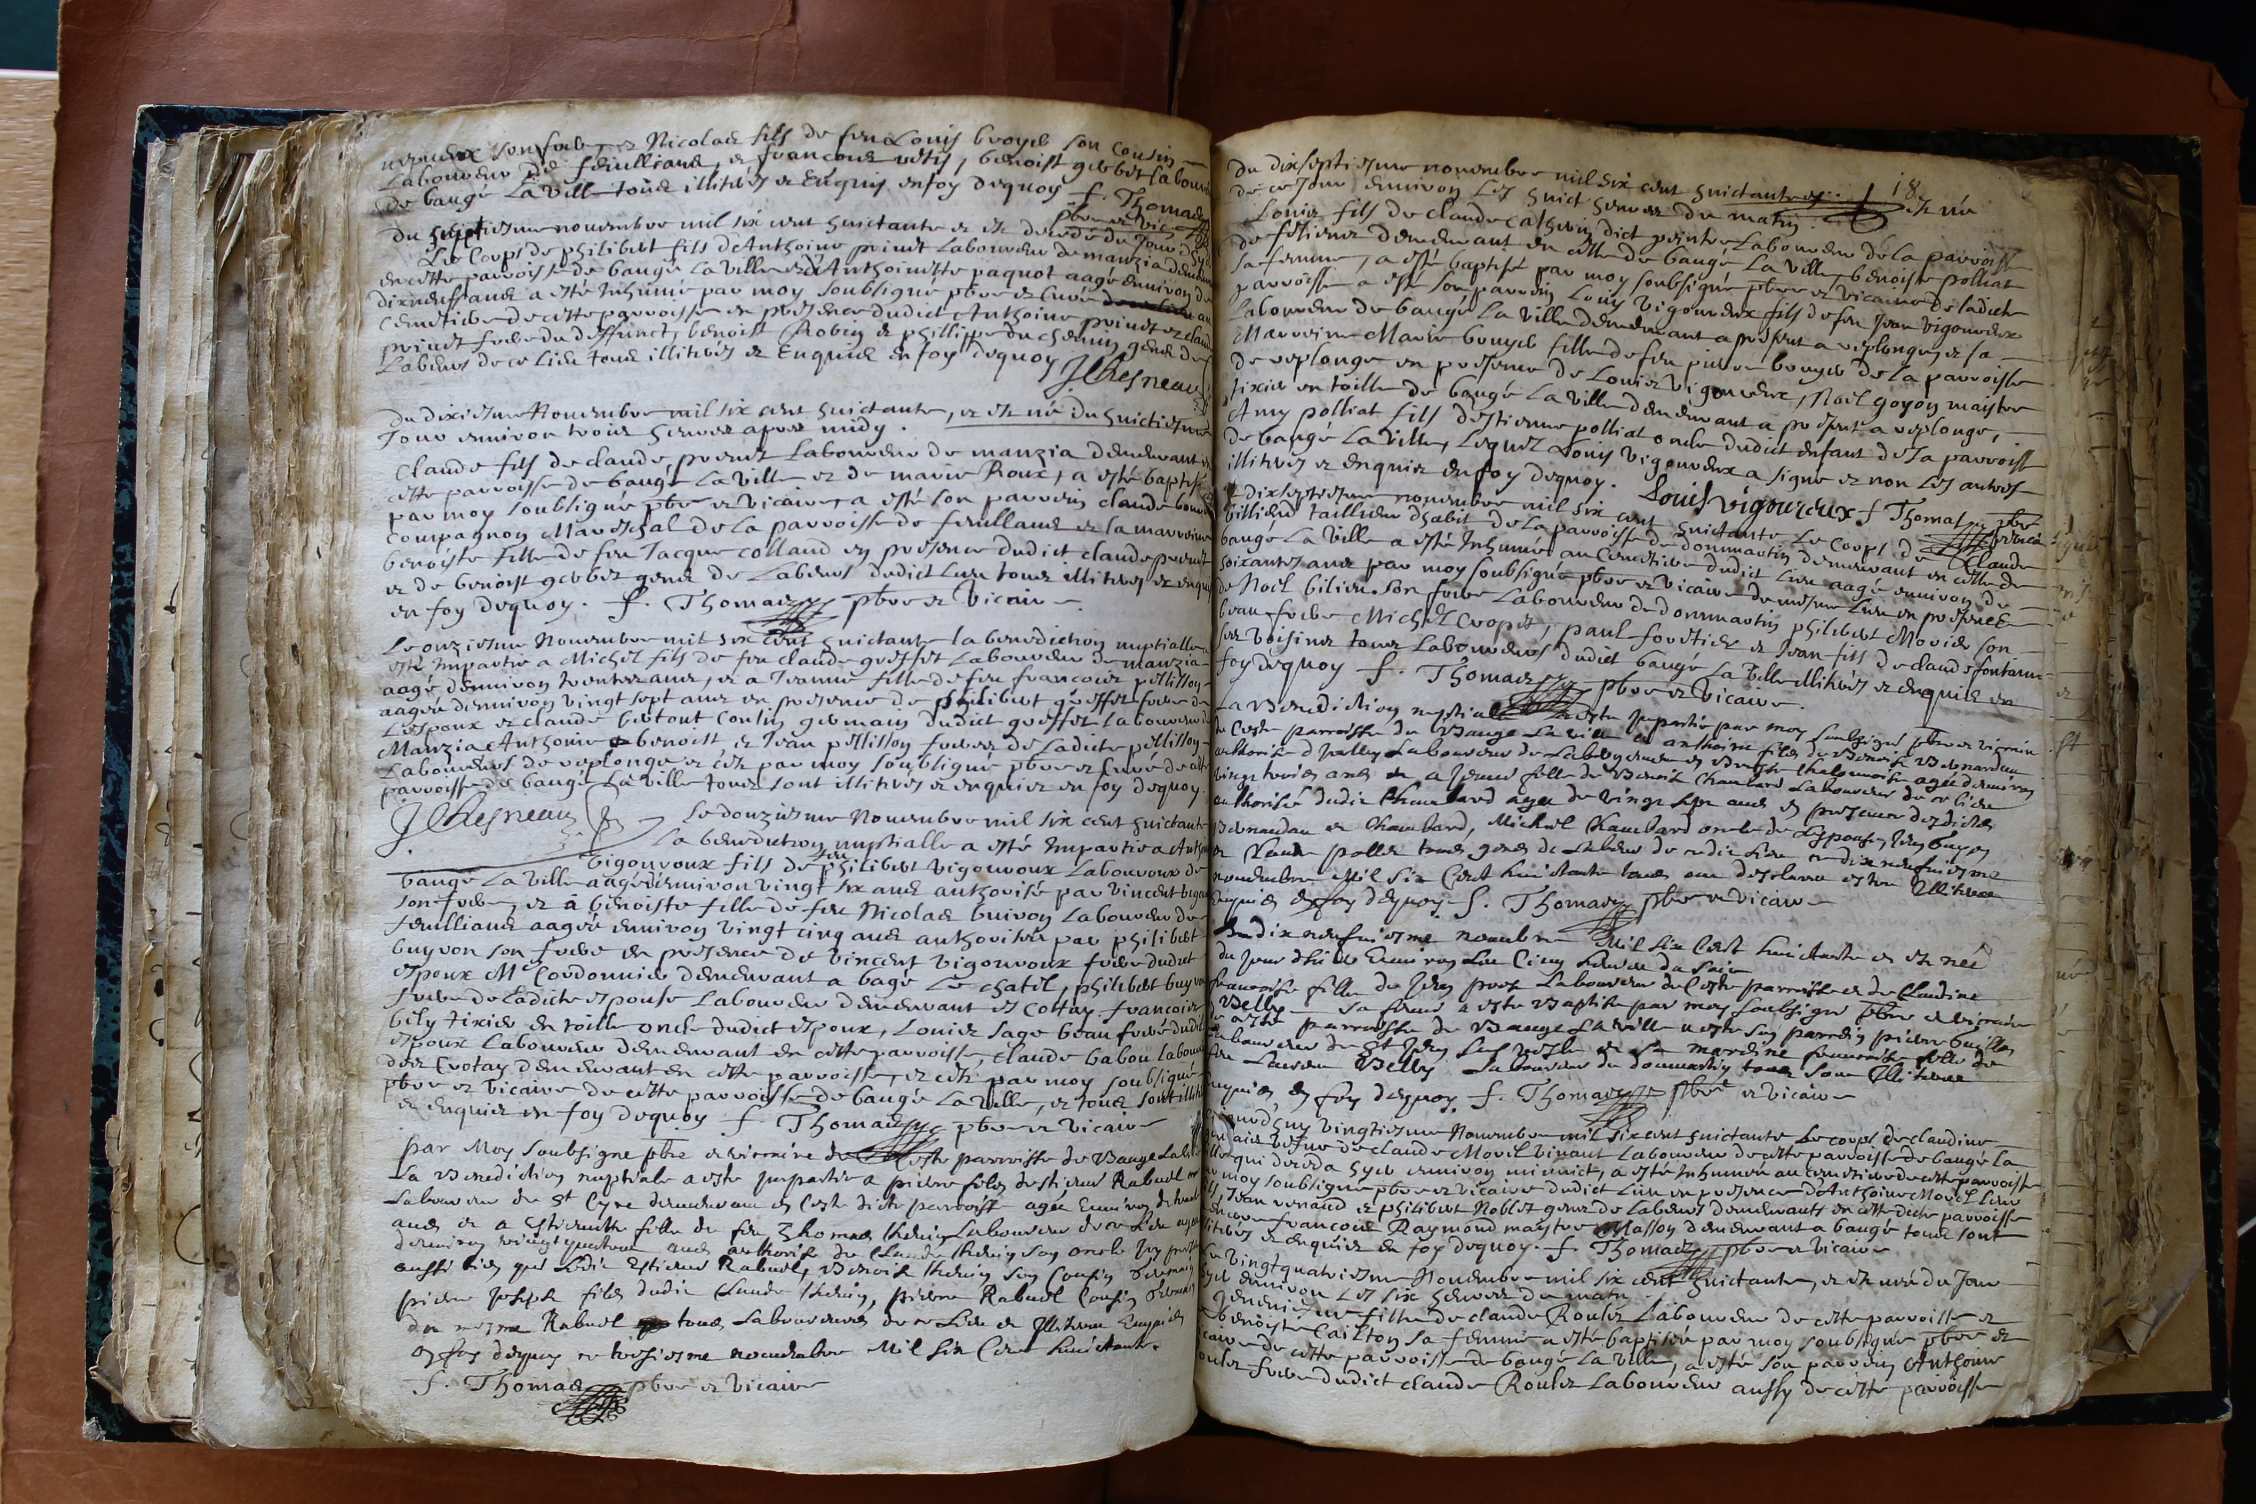 son frere, et Nicolas fils de feu Louis broyer son Cousin
Laboureur de feuillians, et francois vetis, benoist gerbet labour
de baugé La ville tous illitirés et Enquis enfoy dequoy f. Thomas
pbre et vic
du septiesme novembre mil six cent huictante et est decedé du Jour dhy
Le Corps de philibert fils dAnthoine privet Laboureur de manzia demeu
en cette parroisse de baugé La ville et dAnthoinette paquot aagé environ de
dixneuf ans a esté Inhumé par moy soubsigné pbre et Curé au
Cemetiere de cette parroisse en presence dudict Anthoine privet et claude
privet frere du deffunct, benoist Robin et phillippe du chemin gens de
Labeurs de ce lieu tous illitirés et Enquis en foy dequoy
J. Chesneau
du dixiesme Novembre mil six cent huictante, et est né du huictiesme
Jour environ trois heures apres midy.
Claude fils de claude privet Laboureur de manzia demeurant en
cette parroisse de baugé La ville et de marie Roux, a esté baptisé
par moy soubsigné pbre et vicaire, a esté son parrein claude bou
compagnon Mareschal de la parroisse de feillans et sa marreine
benoiste fille de feu Jacque Colland en presence dudict claude privet
et de benoist gerbet gens de Labeurs dudict lieu tous illitirés et enquis
en foy dequoy. f. Thomas pbre et vicaire
Le onziesme Novembre mil six cent huictante la benediction nuptialle a
esté Impartie a Michel fils de feu claude greffet Laboureur de manzia
aagé denviron trente ans, et a Jeanne fille de feu francois pellisson
aagée denviron vingt sept ans en presence de philibert greffet frere de
Lespoux et claude bertout Cousin germain dudict greffet laboureurs de
Manzia Anthoine benoist, et Jean pellisson freres de Ladicte pellisson
Laboureurs de replonge et cest par moy soubsigné pbre et Curé de cette
parroisse de baugé La ville tous sont illitirés et enquis en foy dequoy.
J. Chesneau
Le douziesme Novembre mil six cent huictante
La benediction nuptialle a esté Impartie a Anthoi
vigouroux fils de feu philibert vigouroux Laboureur de
baugé La ville aagé denviron vingt six ans authorisé par vincent vigou
son frere, et a benoiste fille de feu Nicolas buivon Laboureur de
feuillians aagée environ vingt cinq ans authorisée par philibert
buyvon son frere en presence de vincent vigouroux frere dudict
espoux Me Cordonnier demeurant a bagé Le chatel, philibert buyvon
frere de ladicte espouse Laboureur demeurant es Cottay, francois
bely tixier en toille oncle dudict espoux, Louis sage beau frere dudict
espoux Laboureur demeurant en cette parroisse, claude babou laboureur
des Crotay demeurant en cette parroisse, et cest par moy soubsigné
pbre et vicaire de cette parroisse de baugé La ville, et tous sont illiti
et enquis en foy dequoy f. Thomas pbre et vicaire
par Moy soubsigne pbre et vicaire de Ceste parroisse de Bauge La ville
La Benediction nuptiale a este Impartie a pierre filz destienne Rabuel
Laboureur de St Cyre demeurant en Ceste dicte parroisse agé Environ de trente
ans et a Estiennette fille de feu Thomas Laboureur de ce Lieu agée
denviron vingt quatre ans authorisé de Claude son oncle En presence
aussi bien que Ledit Estienne Rabuel, Benoist son Cousin Germain
pierre Joseph filz dudit Claude, pierre Rabuel Cousin Germain
du mesme Rabuel tous Laboureurs de ce Lieu et Illitirés Enquis
en foy dequoy ce treziesme novembre Mil Six Cent huictante.
f. Thomas pbre et vicaire
18
du dixseptiesme novembre mil six cent huictante et est né
de ce Jour environ Les huict heures du matin.
Louis fils de claude Catherin dict peintre Laboureur de la parroisse
de fétienne demeurant en cette de baugé La ville, benoiste polliat
sa femme, a esté baptisé par moy soubsigné pbre et vicaire de ladicte
parroisse a esté son parrein Louis vigoureux fils de feu Jean vigoureux
Laboureur de baugé La ville demeurant a present a replonge, et sa
Marreine Marie bouyer fille de feu pierre bouyer de la parroisse
de replonge en presence de Louis vigoureux, Noel goyon maistre
tixier en toille de baugé La ville demeurant a present a replonge,
Amy polliat fils destienne polliat oncle dudict enfant de sa parroisse
de baugé La ville, Lequel Louis vigoureux a signé et non Les autres
illitirés et enquis en foy dequoy. Louis Vigoureux f. Thomas pbre
et vicai
dixseptiesme novembre mil six cent huictante Le Corps de Claude
billiend taillieur dhabit de la parroisse de dommartin demeurant en cette de
baugé La ville a esté Inhumé au Cemetiere dudict lieu aagé environ de
soixantes ans par moy soubsigné pbre et vicaire de mesme lieu en presence
de Noel bilien son frere Laboureur de dommartin philibert Movier son
beau frere Michel Cropet, paul foretier et Jean fils de claude fontaine
ses voisins tous Laboureurs dudict baugé La ville illitirés et enquis en
foy dequoy f. Thomas pbre et vicaire.
La Benediction nuptiale a este Impartie par moy soubsigne pbre et vicaire
de Ceste parroisse de Bauge La ville a anthoine filz de Benoist Bernardan
authorisé Laboureur de agé denviron
vingt trois ans et a Jeanne fille de Benoist Chambard Laboureur de ce lieu
authorisé dudit Chambard agée de vingt sept ans en presence desdictes
Bernardan et Chambard, Michel Chambard oncle de Lespouse, Jean buyon
et Claude pollet tous gens de Labeur de cedit lieu ce dix neufiesme
novembre Mil Six Cent huictante tous ont desclarer estre Illitiree
Enquis en foy dequoy f. Thomas pbre et vicaire
Le dix neufuiesme novembre Mil Six Cent huictante et est née
du Jour dhier Environ Les Cinq heures du Soir
francoise fille de Jean pros Laboureur de Ceste parroisse et de Claudine
Velly sa femme a este Baptisee par moy soubsigne pbre et vicaire
de ceste parroisse de Bauge La ville a este son parrein pierre Guillon
Laboureur de St Jean Sur Vesle et sa mareine francoise fille de
feu Laurent Velly Laboureur de dommartin tous sont Illitiree
enquis en foy dequoy. f. Thomas pbre et vicaire
vingtiesme Novembre mil six cent huictante Le corps de claudine
vefve de claude Morel vivant Laboureur de cette parroisse de baugé La
qui deceda hyer environ minuict, a esté Inhumée au cemetiere de cette parroisse
moy soubsigné pbre et vicaire dudict lieu en presence dAnthoine Morel
Jean renaud et philibert Noblet gens de labeurs demeurants en cette dicte parroisse
encore francois Raymond maystre Masson demeurant a baugé tous sont
illitirés et enquis en foy dequoy. f. Thomas pbre et vicaire
Le vingtquatriesme Novembre mil six cent huictante, et est née du Jour
hyer environ Les six heures du matin
fille de claude Roulet Laboureur de cette parroisse et
benoiste Cailton sa femme a esté baptisée par moy soubsigné pbre et
vicaire de cette parroisse de baugé La ville, a esté son parrein Anthoine
Roulet frere dudict claude Roulet Laboureur aussy de cette parroisse